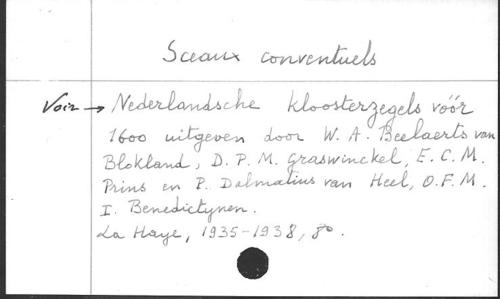 Sceaux conventuels
Voir → Nederlandsche kloosterzegels vóór
1600 uitgeven door W. A. Beelaerts van
Blokland, D. P. M. Graswinckel, E. C. M.
Prins en P. Dalmatius van Heel, O.F.M.
I. Benedictynen.
La Haye, 1935-1938, 8º.